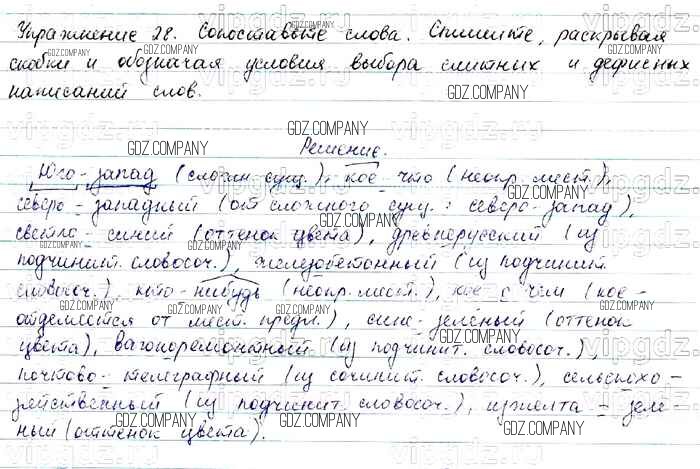 Упражнение 28. Сопоставьте слова. Спишите, раскрывая
скобки и обозначая условия выбора слитных и дефисных
написаний слов.
Решение.
Юго-запад (сложн. сущ.), кое-что (неопр. мест.),
северо-западный (от сложного сущ.: северо-запад),
светло-синий (оттенок цвета), древнерусский (из
подчинит. словосоч.), железобетонный (из подчинит.
словосоч.), кто-нибудь (неопр. мест.), кое с чем (кое-
отделяется от мест. предл.), сине-зелёный (оттенок
цвета), вагоноремонтный (из подчинит. словосоч.),
почтово-телеграфный (из сочинит. словосоч.), сельскохо-
зяйственный (из подчинит. словосоч.), изжелта-зеле-
ный (оттенок цвета).